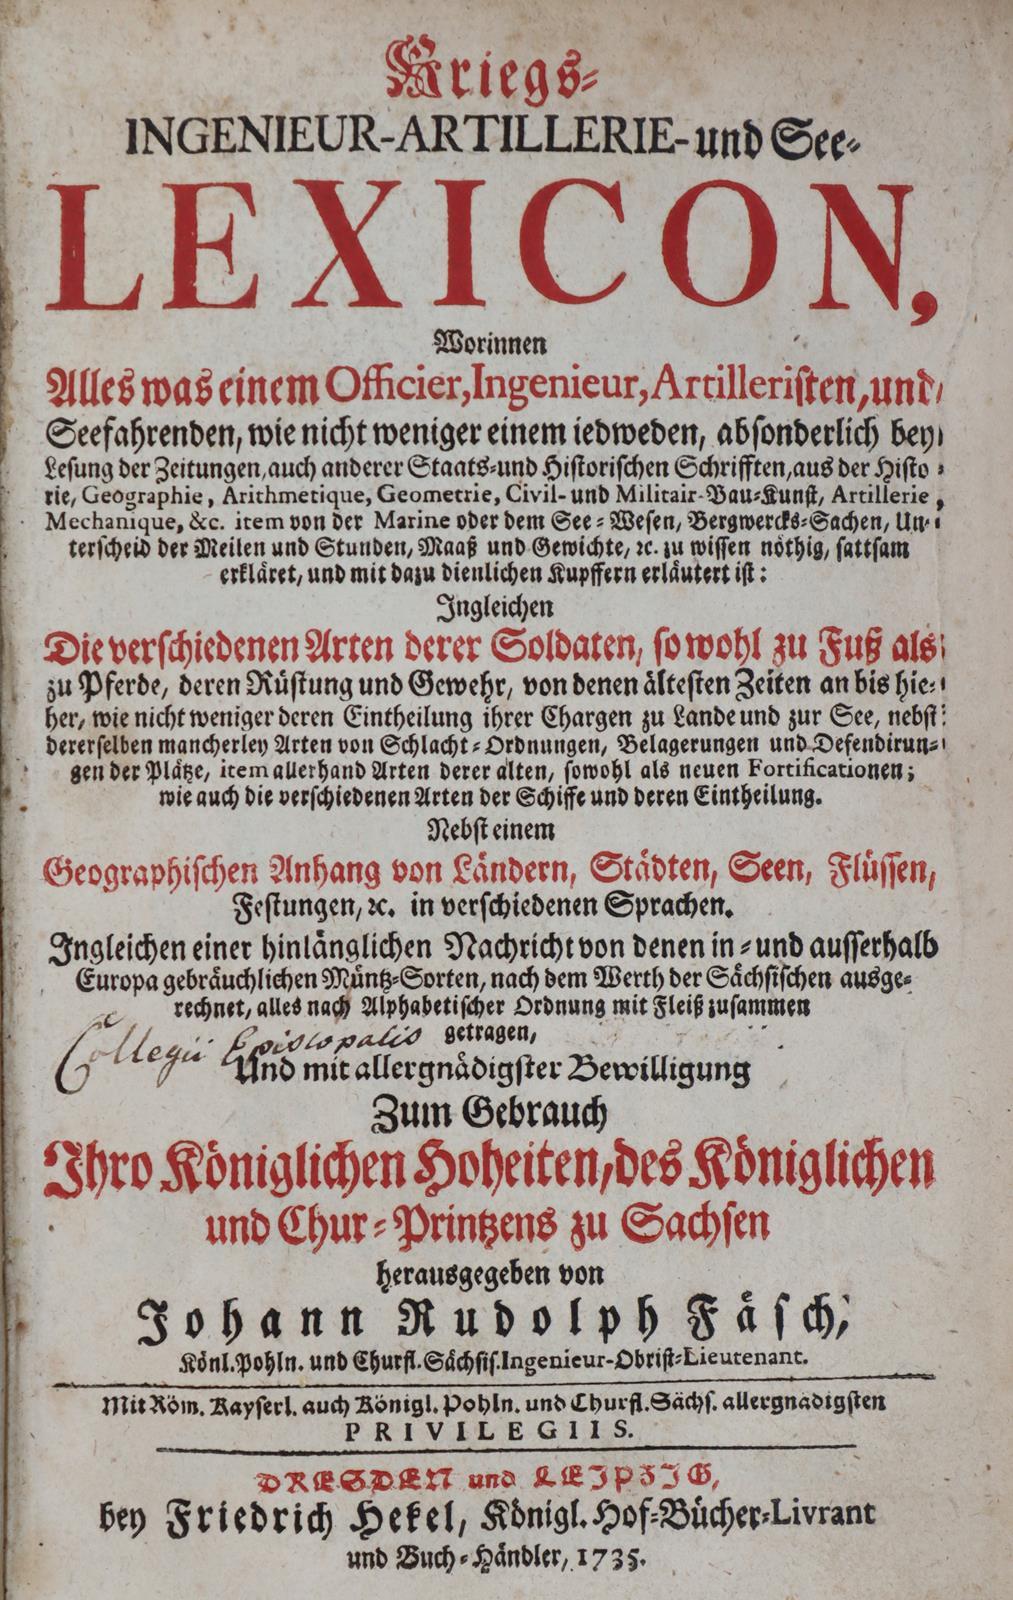 Kriegs-
INGENIEUR-ARTILLERIE-und See-
LEXICON,
Worinnen
Alles was einem Officier, Ingenieur, Artilleristen, und
Seefahrenden, wie nicht weniger einem iedweden, absonderlich bey
Lesung der Zeitungen, auch anderer Staats-und Historischen Schrifften, aus der Histo-
rie, Geographie, Arithmetique, Geometrie, Civil-und Militair-Bau-Kunst, Artillerie,
Mechanique, &c. item von der Marine oder dem See-Wesen, Bergwercks-Sachen, Un-
terscheid der Meilen und Stunden, Maaß und Gewichte, ꝛc. zu wissen nöthig, sattsam
erkläret, und mit dazu dienlichen Kupffern erläutert ist:
Ingleichen
Die verschiedenen Arten derer Soldaten, so wohl zu Fuß als
zu Pferde, deren Rüstung und Gewehr, von denen ältesten Zeiten an bis hie-
her, wie nicht weniger deren Eintheilung ihrer Chargen zu Lande und zur See, nebst
dererselben mancherley Arten von Schlacht-Ordnungen, Belagerungen und Defendirun-
gen der Plätze, item allerhand Arten derer alten, sowohl als neuen Fortificationen;
wie auch die verschiedenen Arten der Schiffe und deren Eintheilung.
Nebst einem
Geographischen Anhang von Ländern, Städten, Seen, Flüssen,
Festungen, ꝛc. in verschiedenen Sprachen.
Ingleichen einer hinlänglichen Nachricht von denen in-und ausserhalb
Europa gebräuchlichen Müntz-Sorten, nach dem Werth der Sächsischen ausge-
rechnet, alles nach Alphabetischer Ordnung mit Fleiß zusammen
getragen,
Collegii Episcopalis
Und mit allergnädigster Bewilligung
Zum Gebrauch
Ihro Königlichen Hoheiten, des Königlichen
und Chur-Printzens zu Sachsen
herausgegeben von
Johann Rudolph Fäsch,
Könl. Pohln. und Churfl. Sächsis. Ingenieur-Obrist-Lieutenant.
Mit Röm. Kayserl. auch Königl. Pohln. und Churfl. Sächs. allergnädigsten
PRIVILEGIIS.
DRESDEN und LEIPZIG,
bey Friedrich Hekel, Königl. Hof-Bücher-Livrant
und Buch-Händler, 1735.